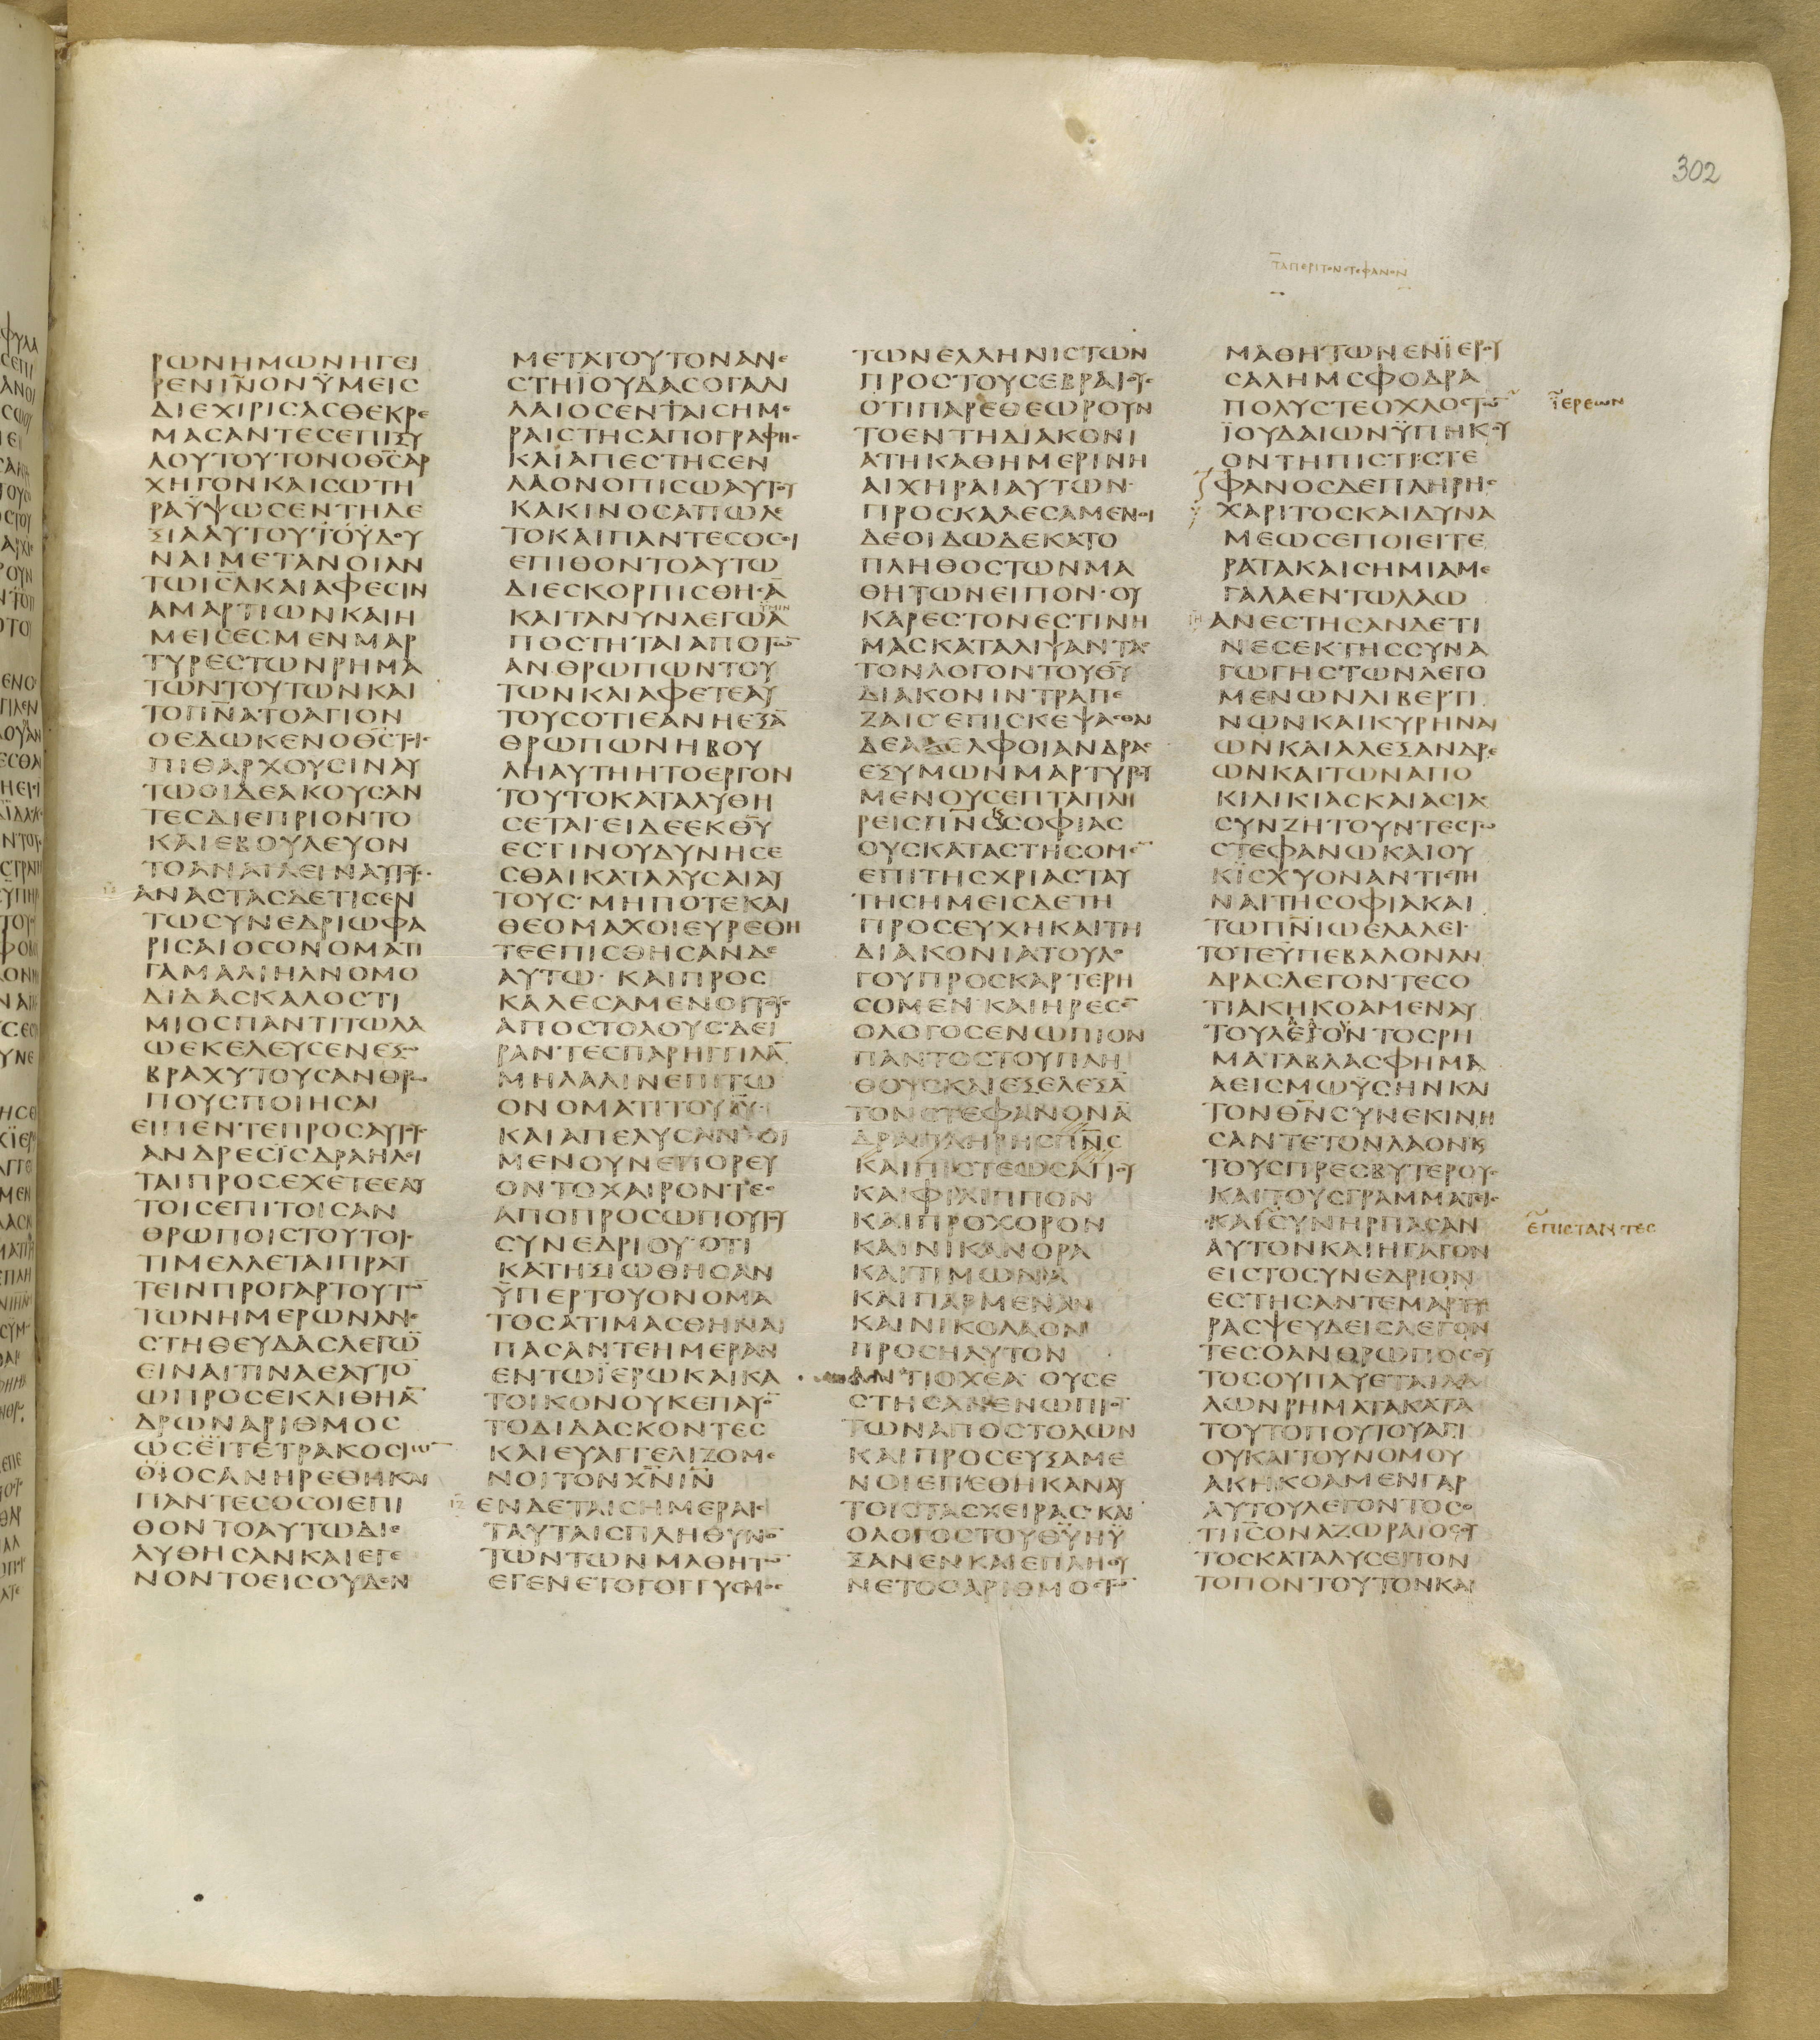 302
ΤΑΠΕΡΙΤΟΝϹΤΕΦΑΝΟΝ
ΡΩΝΗΜΩΝΗΓΕΙ
ΡΕΝΙΝΟΝΫΜΕΙϹ
ΔΙΕΧΙΡΙϹΑϹΘΕΚΡΕ
ΜΑϹΑΝΤΕϹΕΠΙΞΥ
ΛΟΥΤΟΥΤΟΝΟΘϹΑΡ
ΧΗΓΟΝΚΑΙϹΩΤΗ
ΡΑΫΨΩϹΕΝΤΗΔΕ
ΞΙΑΑΥΤΟΥΤΟΥΔΟΥ
ΝΑΙΜΕΤΑΝΟΙΑΝ
ΤΩΙϹΛΚΑΙΑΦΕϹΙΝ
ΑΜΑΡΤΙΩΝΚΑΙΗ
ΜΕΙϹΕϹΜΕΝΜΑΡ
ΤΥΡΕϹΤΩΝΡΗΜΑ
ΤΩΝΤΟΥΤΩΝΚΑΙ
ΤΟΠΝΑΤΟΑΓΙΟΝ
ΟΕΔΩΚΕΝΟΘϹΤΟΙ
ΠΙΘΑΡΧΟΥϹΙΝΑΥ
ΤΩΟΙΔΕΑΚΟΥϹΑΝ
ΤΕϹΔΙΕΠΡΙΟΝΤΟ
ΚΑΙΕΒΟΥΛΕΥΟΝ
ΤΟΑΝΑΙΛΕΙΝΑΥΤΟΥϹ
ΑΝΑϹΤΑϹΔΕΤΙϹΕΝ
ΤΩϹΥΝΕΔΡΙΩΦΑ
ΡΙϹΑΙΟϹΟΝΟΜΑΤΙ
ΓΑΜΑΛΙΗΛΝΟΜΟ
ΔΙΔΑϹΚΑΛΟϹΤΙ
ΜΙΟϹΠΑΝΤΙΤΩΛΑ
ΩΕΚΕΛΕΥϹΕΝΕΞΩ
ΒΡΑΧΥΤΟΥϹΑΝΘΡΩ
ΠΟΥϹΠΟΙΗϹΑΙ
ΕΙΠΕΝΤΕΠΡΟϹΑΥΤΟΥϹ
ΑΝΔΡΕϹΪϹΔΡΑΗΛΙ
ΤΑΙΠΡΟϹΕΧΕΤΕΕΑΥ
ΤΟΙϹΕΠΙΤΟΙϹΑΝ
ΘΡΩΠΟΙϹΤΟΥΤΟΙϹ
ΤΙΜΕΛΛΕΤΑΙΠΡΑΤ
ΤΕΙΝΠΡΟΓΑΡΤΟΥΤΩ
ΤΩΝΗΜΕΡΩΝΑΝΕ
ϹΤΗΘΕΥΔΑϹΛΕΓΩ
ΕΙΝΑΙΤΙΝΑΕΑΥΤΟ
ΩΠΡΟϹΕΚΛΙΘΗΑ
ΔΡΩΝΑΡΙΘΜΟϹ
ΩϹΕΪΤΕΤΡΑΚΟϹΙΩ
ΟϹΑΝΗΡΕΘΗΚΑΙ
ΠΑΝΤΕϹΟϹΟΙΕΠΙ
ΘΟΝΤΟΑΥΤΩΔΙΕ
ΛΥΘΗϹΑΝΚΑΙΕΓΕ
ΝΟΝΤΟΕΙϹΟΥΔΕΝ
ΜΕΤΑΤΟΥΤΟΝΑΝΕ
ϹΤΗΪΟΥΔΑϹΟΓΑΛΙ
ΛΑΙΟϹΕΝΤΑΙϹΗΜΕ
ΡΑΙϹΤΗϹΑΠΟΓΡΑΦΗϹ
ΚΑΙΑΠΕϹΤΗϹΕΝ
ΛΑΟΝΟΠΙϹΩΑΥΤΟΥ
ΚΑΚΙΝΟϹΑΠΩΛΕ
ΤΟΚΑΙΠΑΝΤΕϹΟϹΟΙ
ΕΠΙΘΟΝΤΟΑΥΤΩ
ΔΙΕϹΚΟΡΠΙϹΘΗϹΑ
ΫΜΙΝ
ΚΑΙΤΑΝΥΝΛΕΓΩΑ
ΠΟϹΤΗΤΑΙΑΠΟΤΩ
ΑΝΘΡΩΠΩΝΤΟΥ
ΤΩΝΚΑΙΑΦΕΤΕΑΥ
ΤΟΥϹΟΤΙΕΑΝΗΕΞΑ
ΘΡΩΠΩΝΗΒΟΥ
ΛΗΑΥΤΗΗΤΟΕΡΓΟΝ
ΤΟΥΤΟΚΑΤΑΛΥΘΗ
ϹΕΤΑΙ·ΕΙΔΕΕΚΘΥ
ΕϹΤΙΝΟΥΔΥΝΗϹΕ
ϹΘΑΙΚΑΤΑΛΥϹΑΙΑΥ
ΤΟΥϹ·ΜΗΠΟΤΕΚΑΙ
ΘΕΟΜΑΧΟΙΕΥΡΕΘΗ
ΤΕΕΠΙϹΘΗϹΑΝΔΕ
ΑΥΤΩ·ΚΑΙΠΡΟϹ
ΚΑΛΕϹΑΜΕΝΟΙΤΟΥϹ
ΑΠΟϹΤΟΛΟΥϹΔΕΙ
ΡΑΝΤΕϹΠΑΡΗΓΓΙΛΑ
ΜΗΛΑΛΙΝΕΠΙΤΩ
ΟΝΟΜΑΤΙΤΟΥΙΥ
ΚΑΙΑΠΕΛΥϹΑΝ·ΟΙ
ΜΕΝΟΥΝΕΠΟΡΕΥ
ΟΝΤΟΧΑΙΡΟΝΤΕϹ
ΑΠΟΠΡΟϹΩΠΟΥΤΟΥ
ϹΥΝΕΔΡΙΟΥ·ΟΤΙ
ΚΑΤΗΞΙΩΘΗϹΑΝ
ΫΠΕΡΤΟΥΟΝΟΜΑ
ΤΟϹΑΤΙΜΑϹΘΗΝΑΙ
ΠΑϹΑΝΤΕΗΜΕΡΑΝ
ΕΝΤΩΪΕΡΩΚΑΙΚΑ
ΤΟΙΚΟΝΟΥΚΕΠΑΥΟ
ΤΟΔΙΔΑϹΚΟΝΤΕϹ
ΚΑΙΕΥΑΓΓΕΛΙΖΟΜΕ
ΝΟΙΤΟΝΧΝΙΝ
ΙΖ ΕΝΔΕΤΑΙϹΗΜΕΡΑΙϹ
ΤΑΥΤΑΙϹΠΛΗΘΥΝΟ
ΤΩΝΤΩΝΜΑΘΗΤΩ
ΕΓΕΝΕΤΟΓΟΓΓΥϹΜΟϹ
ΤΩΝΕΛΛΗΝΙϹΤΩΝ
ΠΡΟϹΤΟΥϹΕΒΡΑΙΟΥϹ
ΟΤΙΠΑΡΕΘΕΩΡΟΥΝ
ΤΟΕΝΤΗΔΙΑΚΟΝΙ
ΑΤΗΚΑΘΗΜΕΡΙΝΗ
ΑΙΧΗΡΑΙΑΥΤΩΝ·
ΠΡΟϹΚΑΛΕϹΑΜΕΝΟΙ
ΔΕΟΙΔΩΔΕΚΑΤΟ
ΠΛΗΘΟϹΤΩΝΜΑ
ΘΗΤΩΝΕΙΠΟΝ·ΟΥ
ΚΑΡΕϹΤΟΝΕϹΤΙΝΗ
ΜΑϹΚΑΤΑΛΙΨΑΝΤΑϹ
ΤΟΝΛΟΓΟΝΤΟΥΘΥ
ΔΙΑΚΟΝΙΝΤΡΑΠΕ
ΖΑΙϹ·ΕΠΙϹΚΕΨΑϹΘΑΙ
ΔΕΑΔΕΛΦΟΙΑΝΔΡΑϹ
ΕΞΥΜΩΝΜΑΡΤΥΡΟΥ
ΜΕΝΟΥϹΕΠΤΑΠΛΗ
ΡΕΙϹΠΝϹϚϹΟΦΙΑϹ
ΟΥϹΚΑΤΑϹΤΗϹΟΜΕ
ΕΠΙΤΗϹΧΡΙΑϹΤΑΥ
ΤΗϹΗΜΕΙϹΔΕΤΗ
ΠΡΟϹΕΥΧΗΚΑΙΤΗ
ΔΙΑΚΟΝΙΑΤΟΥΛΟ
ΓΟΥΠΡΟϹΚΑΡΤΕΡΗ
ϹΟΜΕΝ·ΚΑΙΗΡΕϹΕ
ΟΛΟΓΟϹΕΝΩΠΙΟΝ
ΠΑΝΤΟϹΤΟΥΠΛΗ
ΘΟΥϹΚΑΙΕΞΕΛΕΞΑ
ΤΟΝϹΤΕΦΑΝΟΝΑ
ΔΡΑΠΛΗΡΗϹΠΝϹ
ΚΑΙΠΙϹΤΕΩϹΑΓΙΟΥ
ΚΑΙΦΙΛΙΠΠΟΝ
ΚΑΙΠΡΟΧΟΡΟΝ
ΚΑΙΝΙΚΑΝΟΡΑ
ΚΑΙΤΙΜΩΝΑ
ΚΑΙΠΑΡΜΕΝΑΝ
ΚΑΙΝΙΚΟΛΑΟΝ
ΠΡΟϹΗΛΥΤΟΝ
ΑΝΤΙΟΧΕΑ·ΟΥϹΕ
ϹΤΗϹΑΝΕΝΩΠΙΟ
ΤΩΝΑΠΟϹΤΟΛΩΝ
ΚΑΙΠΡΟϹΕΥΞΑΜΕ
ΝΟΙΕΠΕΘΗΚΑΝΑΥ
ΤΟΙϹΤΑϹΧΕΙΡΑϹ·ΚΑΙ
ΟΛΟΓΟϹΤΟΥΘΥΗΥ
ΞΑΝΕΝΚΑΙΕΠΛΗΘΥ
ΝΕΤΟΟΑΡΙΘΜΟϹΤΩ
ΜΑΘΗΤΩΝΕΝΪΕΡΟΥ
ϹΑΛΗΜϹΦΟΔΡΑ
ΠΟΛΥϹΤΕΟΧΛΟϹΤΩ
ΪΕΡΕΩΝ
ΪΟΥΔΑΙΩΝΫΠΗΚΟΥ
ΟΝΤΗΠΙϹΤΙ·ϹΤΕ
ΦΑΝΟϹΔΕΠΛΗΡΗϹ
ΧΑΡΙΤΟϹΚΑΙΔΥΝΑ
ΜΕΩϹΕΠΟΙΕΙΤΕ
ΡΑΤΑΚΑΙϹΗΜΙΑΜΕ
ΓΑΛΑΕΝΤΩΛΑΩ
ΙΗ ΑΝΕϹΤΗϹΑΝΔΕΤΙ
ΝΕϹΕΚΤΗϹϹΥΝΑ
ΓΩΓΗϹΤΩΝΛΕΓΟ
ΜΕΝΩΝΛΙΒΕΡΤΙ
ΝΩΝΚΑΙΚΥΡΗΝΑΙ
ΩΝΚΑΙΑΛΕΞΑΝΔΡΕ
ΩΝΚΑΙΤΩΝΑΠΟ
ΚΙΛΙΚΙΑϹΚΑΙΑϹΙΑϹ
ϹΥΝΖΗΤΟΥΝΤΕϹΤΩ
ϹΤΕΦΑΝΩΚΑΙΟΥ
ΚΪϹΧΥΟΝΑΝΤΙϹΤΗ
ΝΑΙΤΗϹΟΦΙΑΚΑΙ
ΤΩΠΝΙΩΕΛΑΛΕΙ·
ΤΟΤΕΫΠΕΒΑΛΟΝΑΝ
ΔΡΑϹΛΕΓΟΝΤΕϹΟ
ΤΙΑΚΗΚΟΑΜΕΝΑΥ
ΤΟΥΛΕΓΟΝΤΟϹΡΗ
ΜΑΤΑΒΛΑϹΦΗΜΑ
ΑΕΙϹΜΩΫϹΗΝΚΑΙ
ΤΟΝΘΝϹΥΝΕΚΙΝΗ
ϹΑΝΤΕΤΟΝΛΑΟΝΚ
ΤΟΥϹΠΡΕϹΒΥΤΕΡΟΥϹ
ΚΑΙΤΟΥϹΓΡΑΜΜΑΤΙϹ
ΚΑΙϹΥΝΗΡΠΑϹΑΝ
ΕΠΙϹΤΑΝΤΕϹ
ΑΥΤΟΝΚΑΙΗΓΑΓΟΝ
ΕΙϹΤΟϹΥΝΕΔΡΙΟΝ
ΕϹΤΗϹΑΝΤΕΜΑΡΤΥ
ΡΑϹΨΕΥΔΕΙϹΛΕΓΟΝ
ΤΕϹΟΑΝΘΡΩΠΟϹΟΥ
ΤΟϹΟΥΠΑΥΕΤΑΙΛΑ
ΛΩΝΡΗΜΑΤΑΚΑΤΑ
ΤΟΥΤΟΠΟΥΤΟΥΑΓΙ
ΟΥΚΑΙΤΟΥΝΟΜΟΥ
ΑΚΗΚΟΑΜΕΝΓΑΡ
ΑΥΤΟΥΛΕΓΟΝΤΟϹΟ
ΤΙΙϹΟΝΑΖΩΡΑΙΟϹΟΥ
ΤΟϹΚΑΤΑΛΥϹΕΙΤΟΝ
ΤΟΠΟΝΤΟΥΤΟΝΚΑΙ